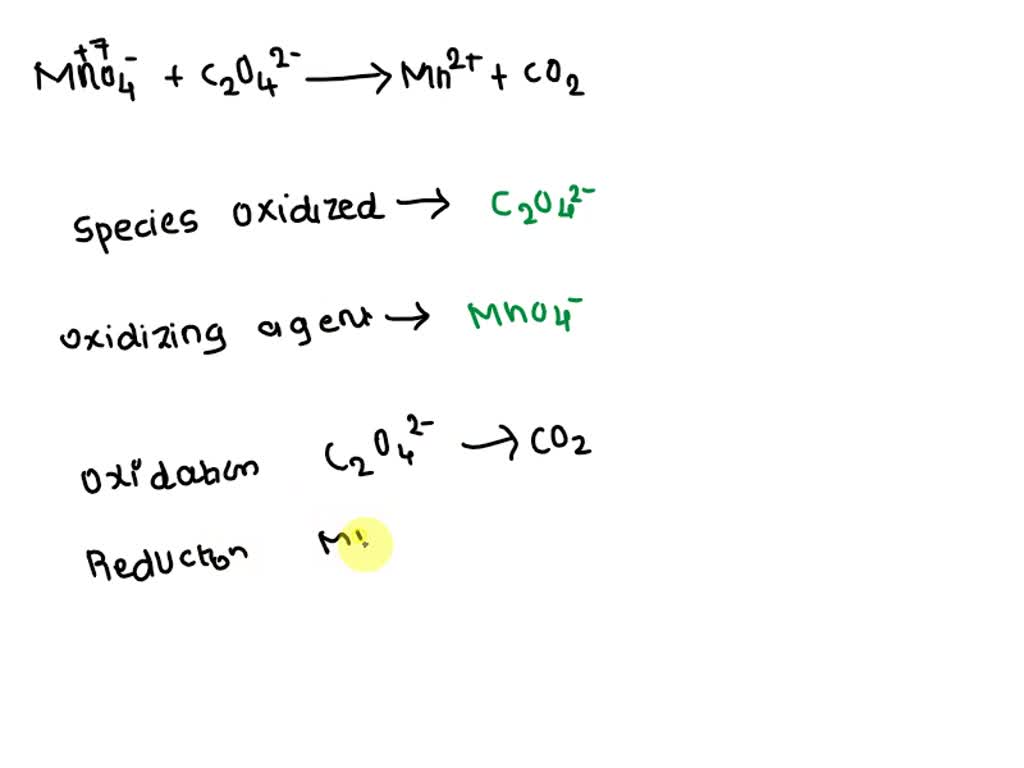 MnO₄⁻ +7 + C₂O₄²⁻ → Mn²⁺ + CO₂
Species oxidized → C₂O₄²⁻
oxidizing agent → MnO₄⁻
oxidation C₂O₄²⁻ → CO₂
Reduction